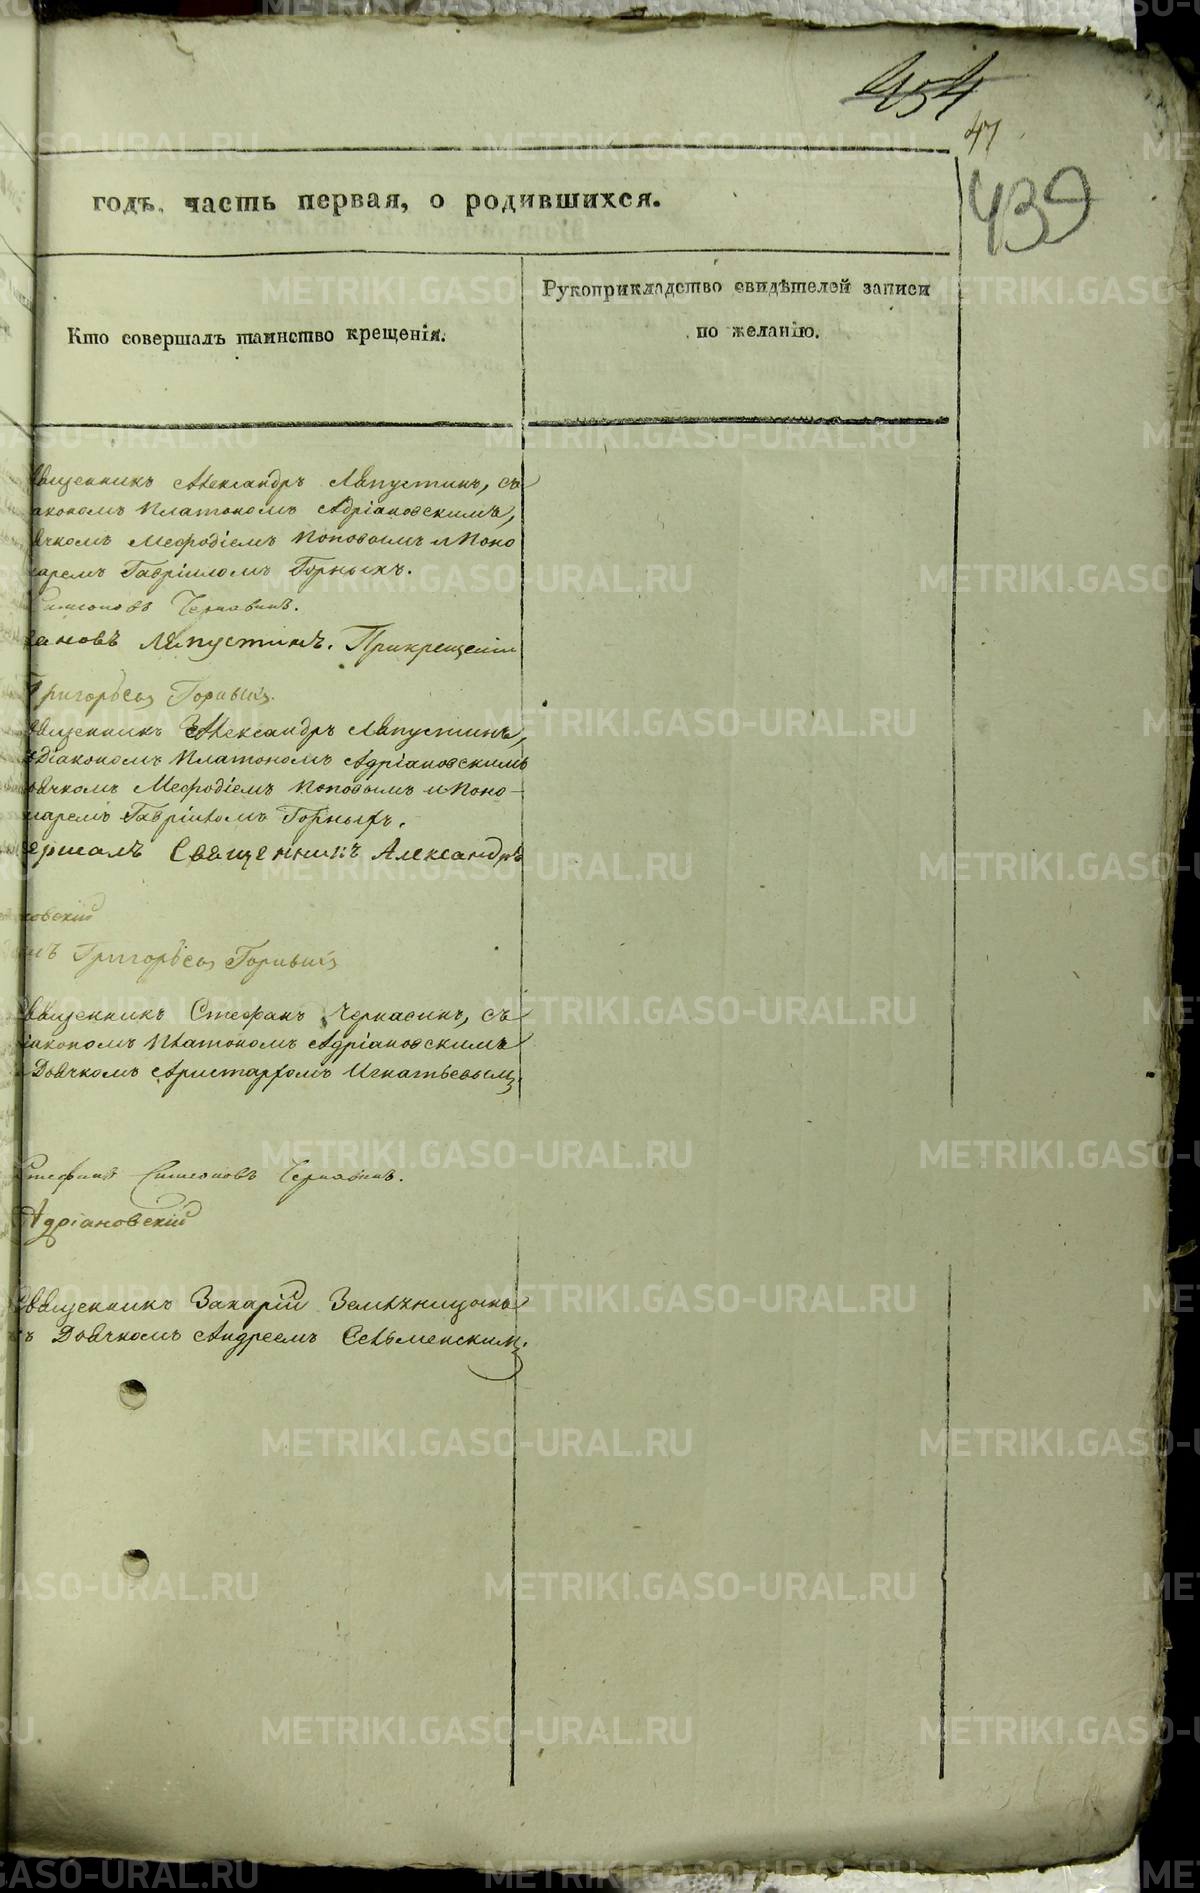 454
47
439
годъ, часть первая, о родившихся.
Кто совершалъ таинство крещенія.
Рукоприкладство свидѣтелей записи
по желанію.
вященникъ Александръ Ляпустинъ, съ
акономъ Платономъ Адріановскимъ,
ячкомъ Меѳодіемъ Поповымъ и Поно
аремъ Гавріиломъ Горныхъ.
Симеоновъ Чернавинъ.
ановъ Ляпустинъ. При крещеніи
Григорьевъ Горныхъ.
вященникъ Александръ Ляпустинъ,
Діакономъ Платономъ Адріановскимъ
ьячкомъ Меѳодіемъ Поповымъ и Поно-
маремъ Гавріиломъ Горныхъ.
ершалъ Священникъ Александръ
новскій
Григорьевъ Горныхъ
вященникъ Стефанъ Чернавинъ, съ
іакономъ Платономъ Адріановскимъ
Дьячкомъ Аристархомъ Игнатьевымъ.
Стефанъ Симеоновъ Чернавинъ.
Адріановскій
Священникъ Захарій Земляницынъ
съ Дьячкомъ Андреемъ Сельменскимъ.
METRIKI.GASO-URAL.RU